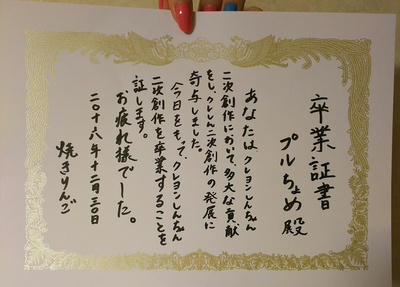 卒業証書
プルちょめ殿
あなたはクレヨンしんちゃん
二次創作において、多大な貢献
をし、クレしん二次創作の発展に
寄与しました。
今日をもって、クレヨンしんちゃん
二次創作を卒業することを
証します。
お疲れ様でした。
二〇十六年十二月三〇日
焼きりんご